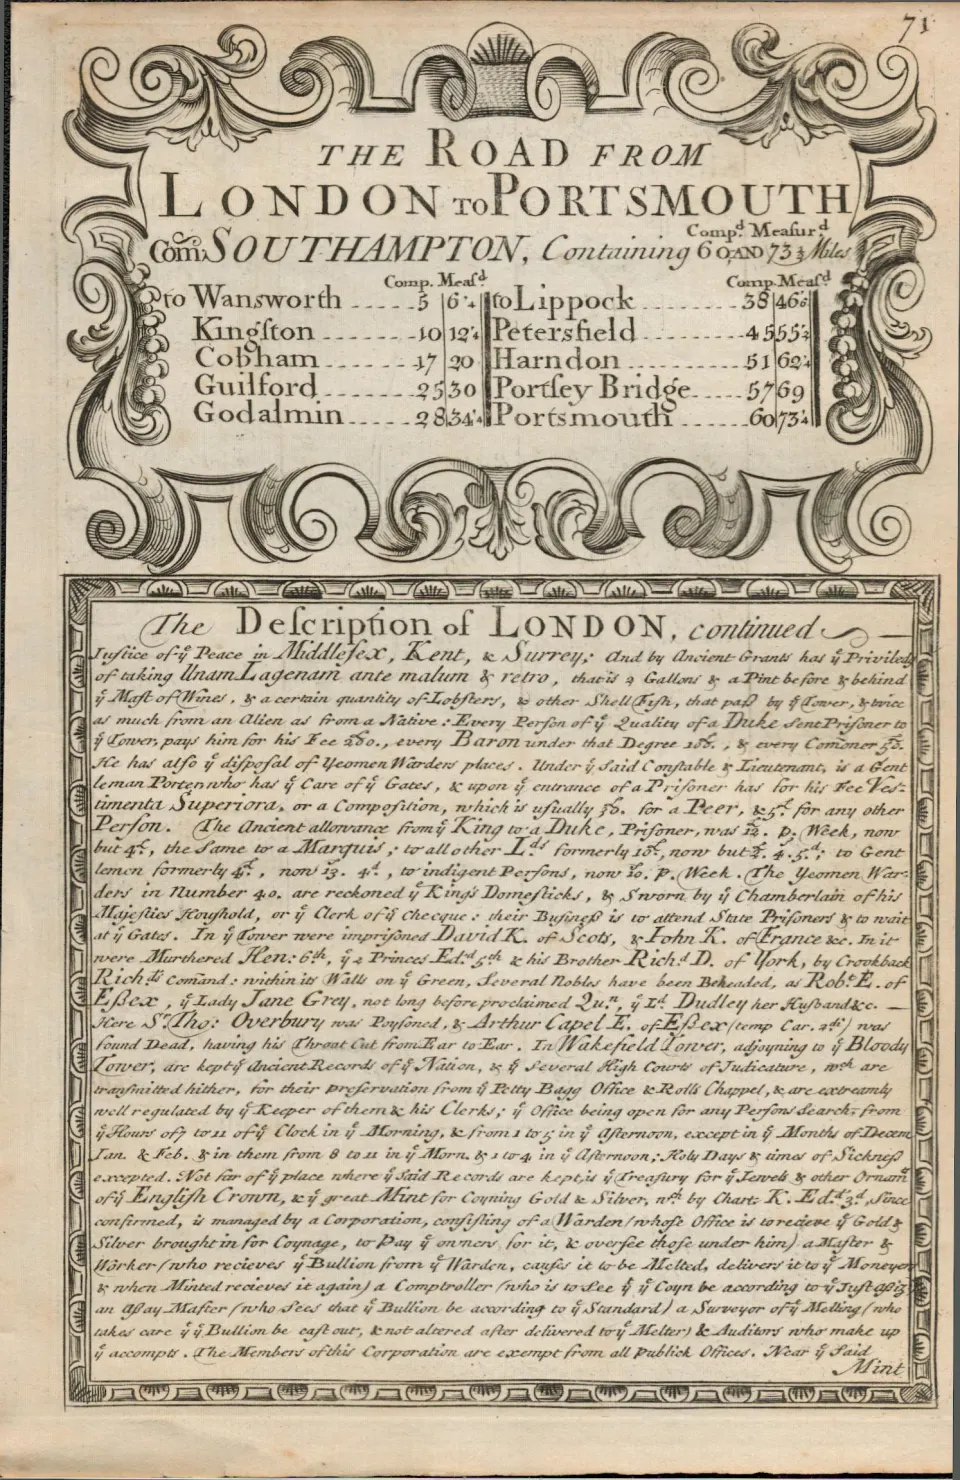 71
THE ROAD FROM
LONDON TO PORTSMOUTH
Comp.d Measur.d
Com. SOUTHAMPTON, Containing 60 AND 73½ Miles
Comp. Meas.d Comp. Meas.d
to Wansworth 5 6'4 to Lippock 38 46'6
Kingſton 10 12'4 Petersfield 45 55'2
Cobham 17 20 Harndon 51 62'4
Guilford 25 30 Portſey Bridge 57 69
Godalmin 28 34'4 Portsmouth 60 73'4
The Deſcription of LONDON, continued
Juſtice of yͤ Peace in Middleſex, Kent, & Surrey; And by Ancient Grants has yͤ Priviledg
of taking Unam Lagenam ante malum & retro, that is 2 Gallons & a Pint before & behind
yͤ Maſt of Wines, & a certain quantity of Lobſters, & other Shell Fiſh, that paſs by yͤ Tower, & twice
as much from an Alien as from a Native: Every Perſon of yͤ Quality of a Duke ſent Priſoner to
yͤ Tower, pays him for his Fee, every Baron under that Degree, & every Com̄oner
He has alſo yͤ diſpoſal of Yeomen Warders places. Under yͤ ſaid Conſtable & Lieutenant, is a Gent
leman Porter, who has yͤ Care of yͤ Gates, & upon yͤ entrance of a Priſoner has for his Fee Veſ-
timenta Superiora, or a Compoſition, which is uſually for a Peer, & for any other
Perſon. The Ancient allowance from yͤ King to a Duke, Priſoner, was p. Week, now
but, the ſame to a Marquis; to all other L.ds formerly, now but; to Gent
lemen formerly, now 13. 4.d, to indigent Perſons, now p. Week. The Yeomen War-
ders in Number 40. are reckoned yͤ King's Domeſticks, & Sworn by yͤ Chamberlain of his
Majeſties Houſhold, or yͤ Clerk of yͤ Checque: their Buſineſs is to attend State Priſoners & to wait
at yͤ Gates. In yͤ Tower were impriſoned David K. of Scots, & Iohn K. of France &c. In it
were Murthered Hen: 6th, yͤ 2 Princes Ed.d 5th & his Brother Rich.d D. of York, by Crookback
Rich.ds Com̄and: within its Walls on yͤ Green, Several Nobles have been Beheaded, as Rob.t E. of
Eſsex, yͤ Lady Jane Grey, not long before proclaimed Qu.n, yͤ L.d Dudley her Huſband &c.
Here S.r Tho: Overbury was Poyſoned, & Arthur Capel E. of Eſsex (temp Car. 2di) was
found Dead, having his Throat Cut from Ear to Ear. In Wakefield Tower, adjoyning to yͤ Bloody
Tower, are kept yͤ Ancient Records of yͤ Nation, & yͤ ſeveral High Courts of Judicature, wch are
tranſmitted hither, for their preſervation from yͤ Petty Bagg Office & Rolls Chappel, & are extreamly
well regulated by yͤ Keeper of them & his Clerks; yͤ Office being open for any Perſons Search, from
yͤ Hours of 7 to 11 of yͤ Clock in yͤ Morning, & from 1 to 5 in yͤ Afternoon, except in yͤ Months of Decem
Jan. & Feb. & in them from 8 to 11 in yͤ Morn. & 1 to 4 in yͤ Afternoon; Holy Days & times of Sickneſs
excepted. Not far of yͤ place where yͤ ſaid Records are kept, is yͤ Treaſury for yͤ Jewels & other Ornam.
of yͤ Engliſh Crown, & yͤ great Mint for Coyning Gold & Silver, wch by Chart: K. Ed.d 3.d, ſince
confirmed, is managed by a Corporation, conſiſting of a Warden (whoſe Office is to recieve yͤ Gold &
Silver brought in for Coynage, to Pay yͤ owners for it, & overſee thoſe under him) a Maſter &
Worker (who recieves yͤ Bullion from yͤ Warden, cauſes it to be Melted, delivers it to yͤ Moneyer
& when Minted recieves it again) a Comptroller (who is to ſee yͭ yͤ Coyn be according to yͤ Juſt aſſiz
an Aſſay Maſter (who ſees that yͤ Bullion be according to yͤ Standard) a Surveyor of yͤ Melting (who
takes care yͭ yͤ Bullion be caſt out, & not altered after delivered to yͤ Melter) & Auditors who make up
yͤ accompts. The Members of this Corporation are exempt from all publick Offices. Near yͤ ſaid
Mint